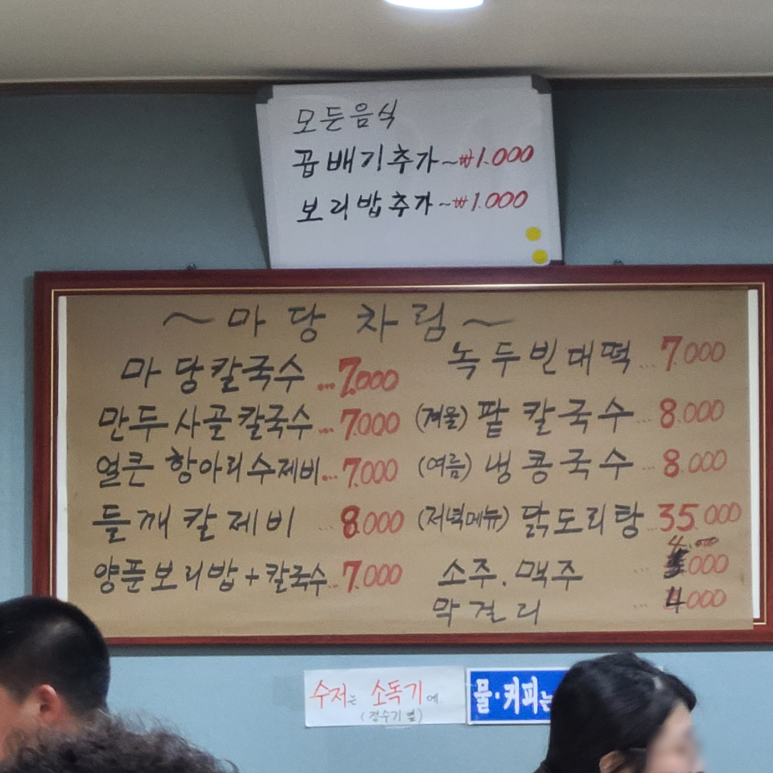 모든음식
곱배기추가~₩1.000
보리밥추가~₩1.000
~마당 차림~
마당칼국수...7.000
만두사골칼국수...7.000
얼큰 항아리수제비...7.000
들깨칼제비 ...8.000
양푼보리밥+칼국수...7.000
녹두빈대떡...7.000
(겨울) 팥칼국수...8.000
(여름) 냉콩국수...8.000
(저녁메뉴) 닭도리탕...35.000
소주.맥주 ...4.000
막걸리 ...4.000
수저는 소독기에
(정수기 옆)
물·커피는